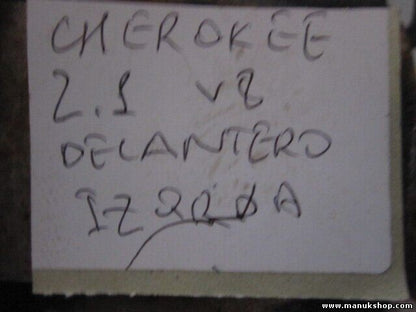 CHEROKEE
2.1 V8
DELANTERO
IZQRDA
www.manukshop.com